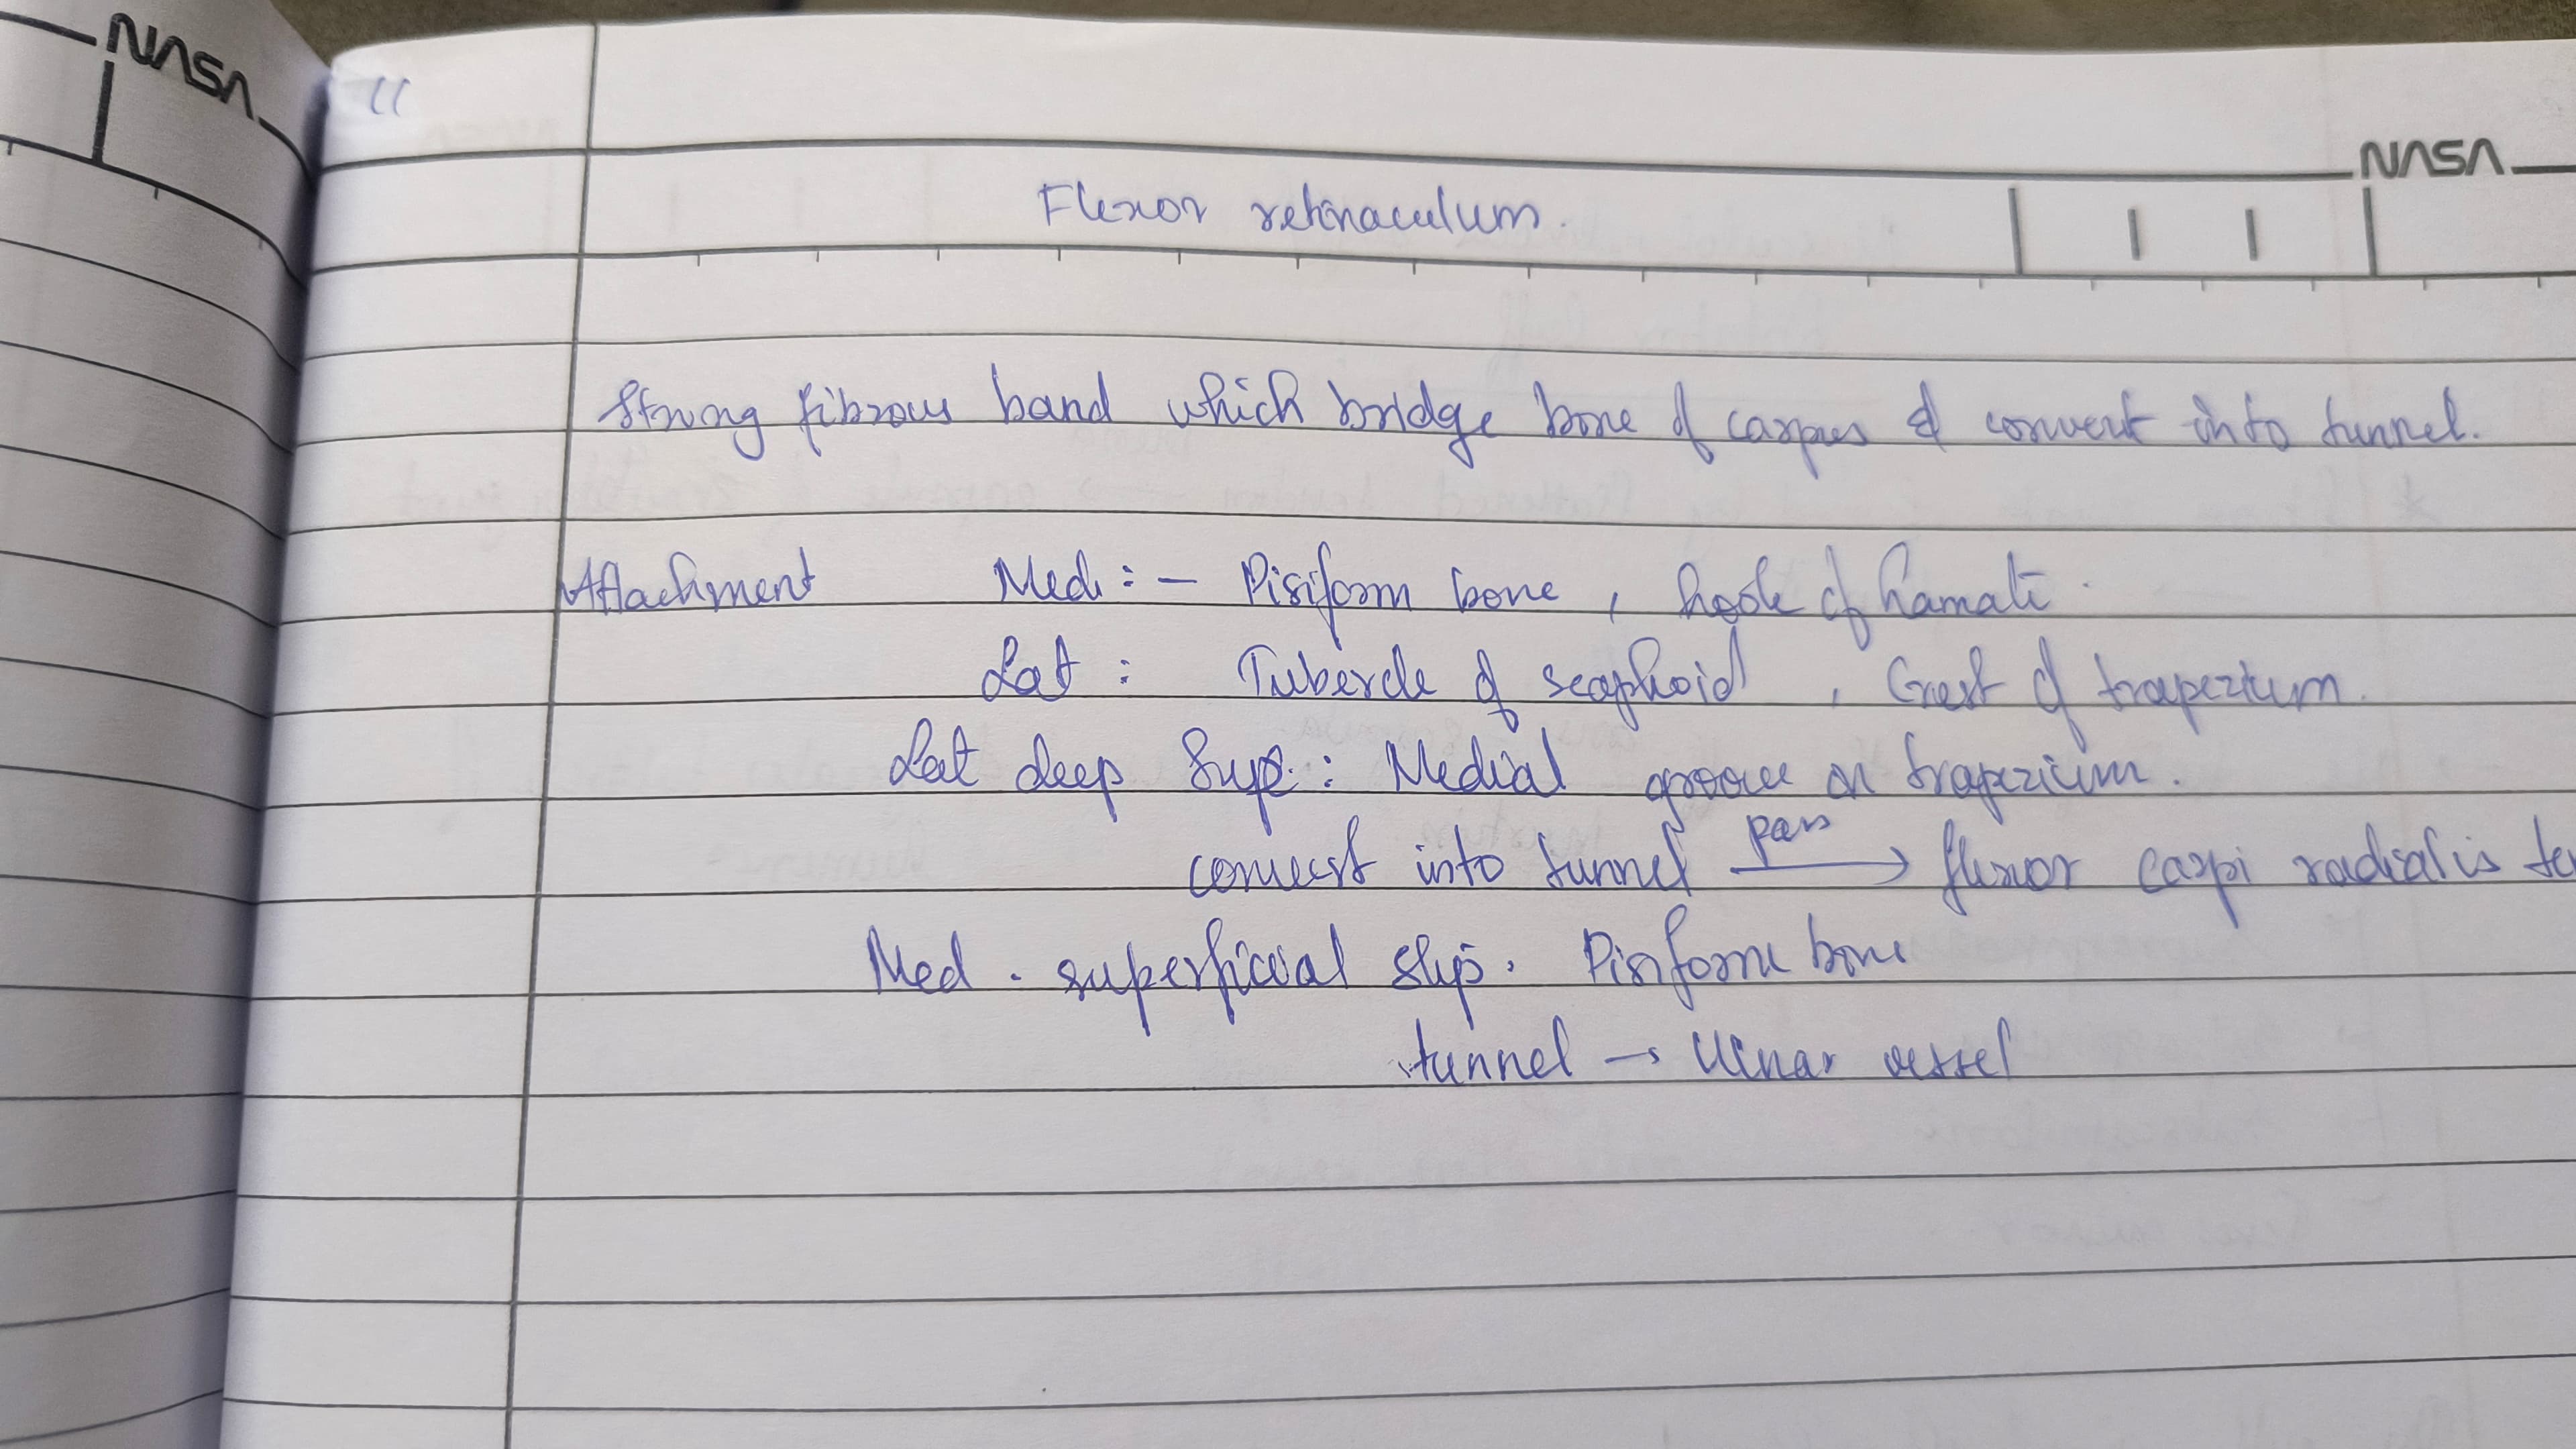 NASA
11
NASA
Flexor retinaculum.
Strong fibrous band which bridge bone of carpus & convert into tunnel.
Attachment Med : - Pisiform bone , hook of hamate.
Lat : Tubercle of scaphoid , Crest of trapezium.
Lat deep : Medial groove on trapezium.
convert into tunnel pass → flexor carpi radialis te
Med . superficial slip. Pisiform bone
tunnel → Ulnar vessel